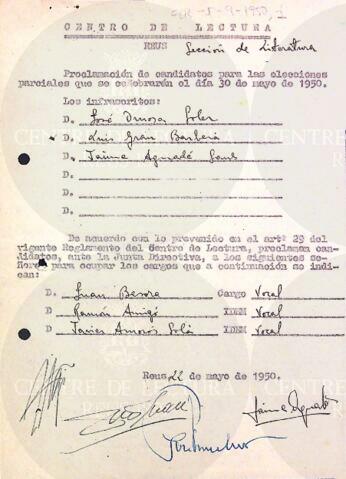 CLR-5-9-1950, 1
CENTRO DE LECTURA
REUS Sección de Literatura
Proclamación de candidatos para las elecciones
parciales que se celebrarán el día 30 de mayo de 1950.
Los infrascritos:
D. José Soler
D. Luis Grau Barberá
D. Jaime Aguadé Sans
D.
D.
D.
De acuerdo con lo prevenido en el artº 29 del
vigente Reglamento del Centro de Lectura, proclaman can-
didatos, ante la Junta Directiva, a los siguientes se-
ñores para ocupar los cargos que a continuación se indi-
can:
D. Juan Besora Cargo Vocal
D. Ramón Amigó IDEM Vocal
D. Javier Amorós Solá IDEM Vocal
Reus 22 de mayo de 1950.
Jaime Aguadé
CENTRE DE LECTURA
REUS